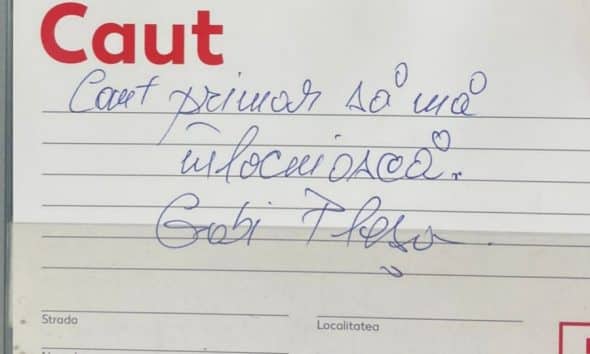 Caut
Caut primar să mă
înlocuiască.
Gabi Pleșa
Strada
Localitatea